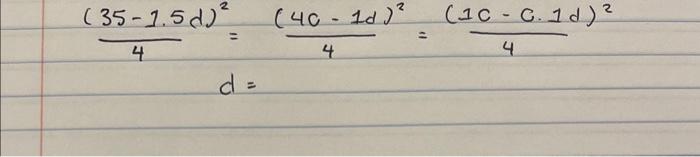 (35-1.5d)²/4 = (40-1d)²/4 = (10-0.1d)²/4
d =